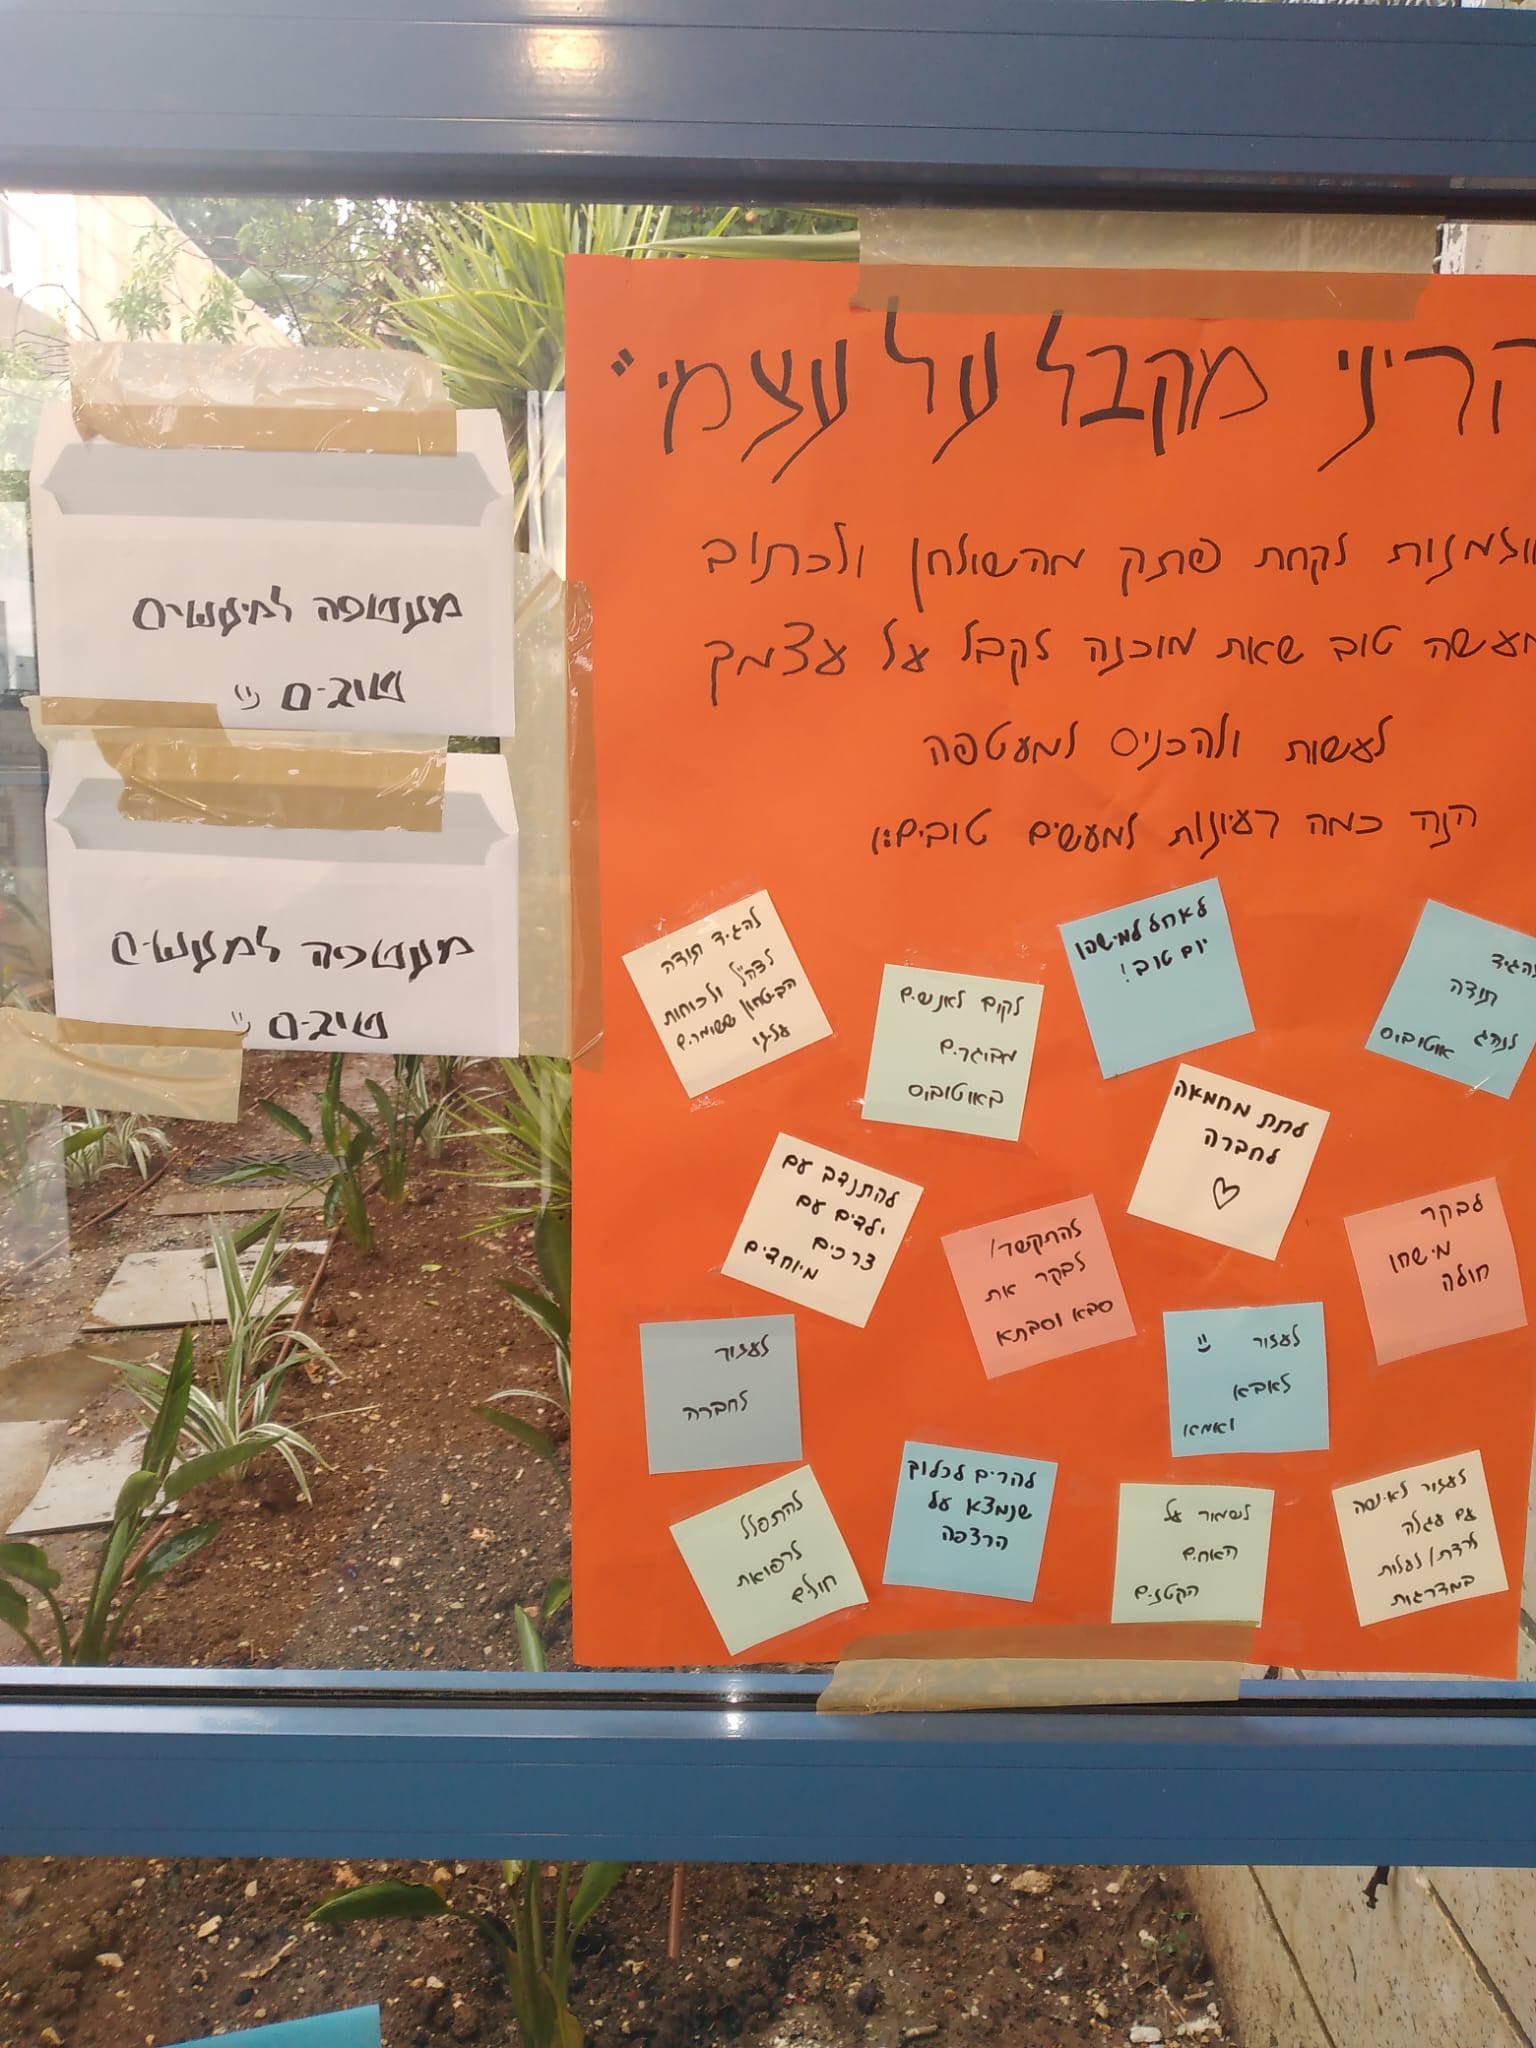 הריני מקבל על עצמי"
מוזמנות לקחת פתק מהשולחן ולכתוב
מעשה טוב שאת מוכנה לקבל על עצמך
לעשות ולהכניס למעטפה
הנה כמה רעיונות למעשים טובים:)
להגיד
תודה
לנהג
אוטובוס
לאחל למישהו
יום טוב!
לקום לאנשים
מבוגרים
באוטובוס
להגיד תודה
לצה"ל ולכוחות
הביטחון ששומרים
עלינו
לבקר
מישהו
חולה
לתת מחמאה
לחברה
♡
להתקשר/
לבקר את
סבא וסבתא
להתנדב עם
ילדים עם
צרכים
מיוחדים
לעזור
לאבא
ואמא
לעזור
לחברה
לעזור לאישה
עם עגלה
לרדת/לעלות
במדרגות
לשמור על
האחים
הקטנים
להרים לכלוך
שנמצא על
הרצפה
להתפלל
לרפואת
חולים
מעטפה למעשים
טובים
מעטפה למעשים
טובים